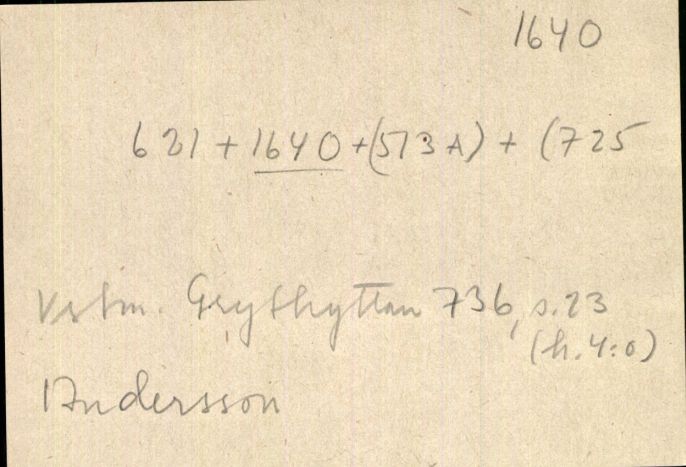 1640
621 + 1640 + (513 A) + (725
Vstm. Grythyttan 736, s. 23
(h. 4:o)
Andersson